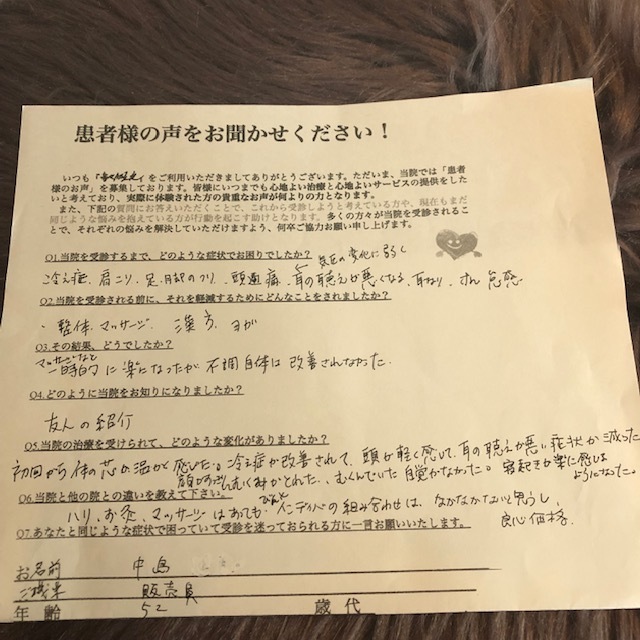 患者様の声をお聞かせください！
いつも「 」をご利用いただきましてありがとうございます。ただいま、当院では「患者
様のお声」を募集しております。皆様にいつまでも心地よい治療と心地よいサービスの提供をした
いと考えており、実際に体験された方の貴重なお声が何よりの力となります。
また、下記の質問にお答えいただくことで、これから受診しようと考えている方や、現在もまだ
同じような悩みを抱えている方が行動を起こす助けとなります。多くの方々が当院を受診されるこ
とで、それぞれの悩みを解決していただけますよう、何卒ご協力お願い申し上げます。
Q1.当院を受診するまで、どのような症状でお困りでしたか？
気圧の変化に弱く
冷え症、肩こり、足、目印のつり、頭過痛、耳の聴えが悪くなる、耳なり、けん怠感
Q2.当院を受診される前に、それを軽減するためにどんなことをされましたか？
・整体、マッサージ、漢方、ヨガ
Q3.その結果、どうでしたか？
マッサージなど
一時的に楽になったが、不調自体は改善されなかった。
Q4.どのように当院をお知りになりましたか？
友人の紹介
Q5.当院の治療を受けられて、どのような変化がありましたか？
初回から体の芯の温かさ感じた。冷え症が改善されて、頭が軽く感じて、耳の聴えが悪い症状が減った
むくみがとれた、むくんでいた自覚がなかった。寝起きが楽に感じる
ようになった。
Q6.当院と他の院との違いを教えて下さい。
ハリ、お灸、マッサージはあっても、インディバの組み合わせは、なかなかないと思うし、
良心価格。
Q7.あなたと同じような症状で困っていて受診を迷っておられる方に一言お願いいたします。
お名前 中島
ご職業 販売員
年 齢 52 歳代